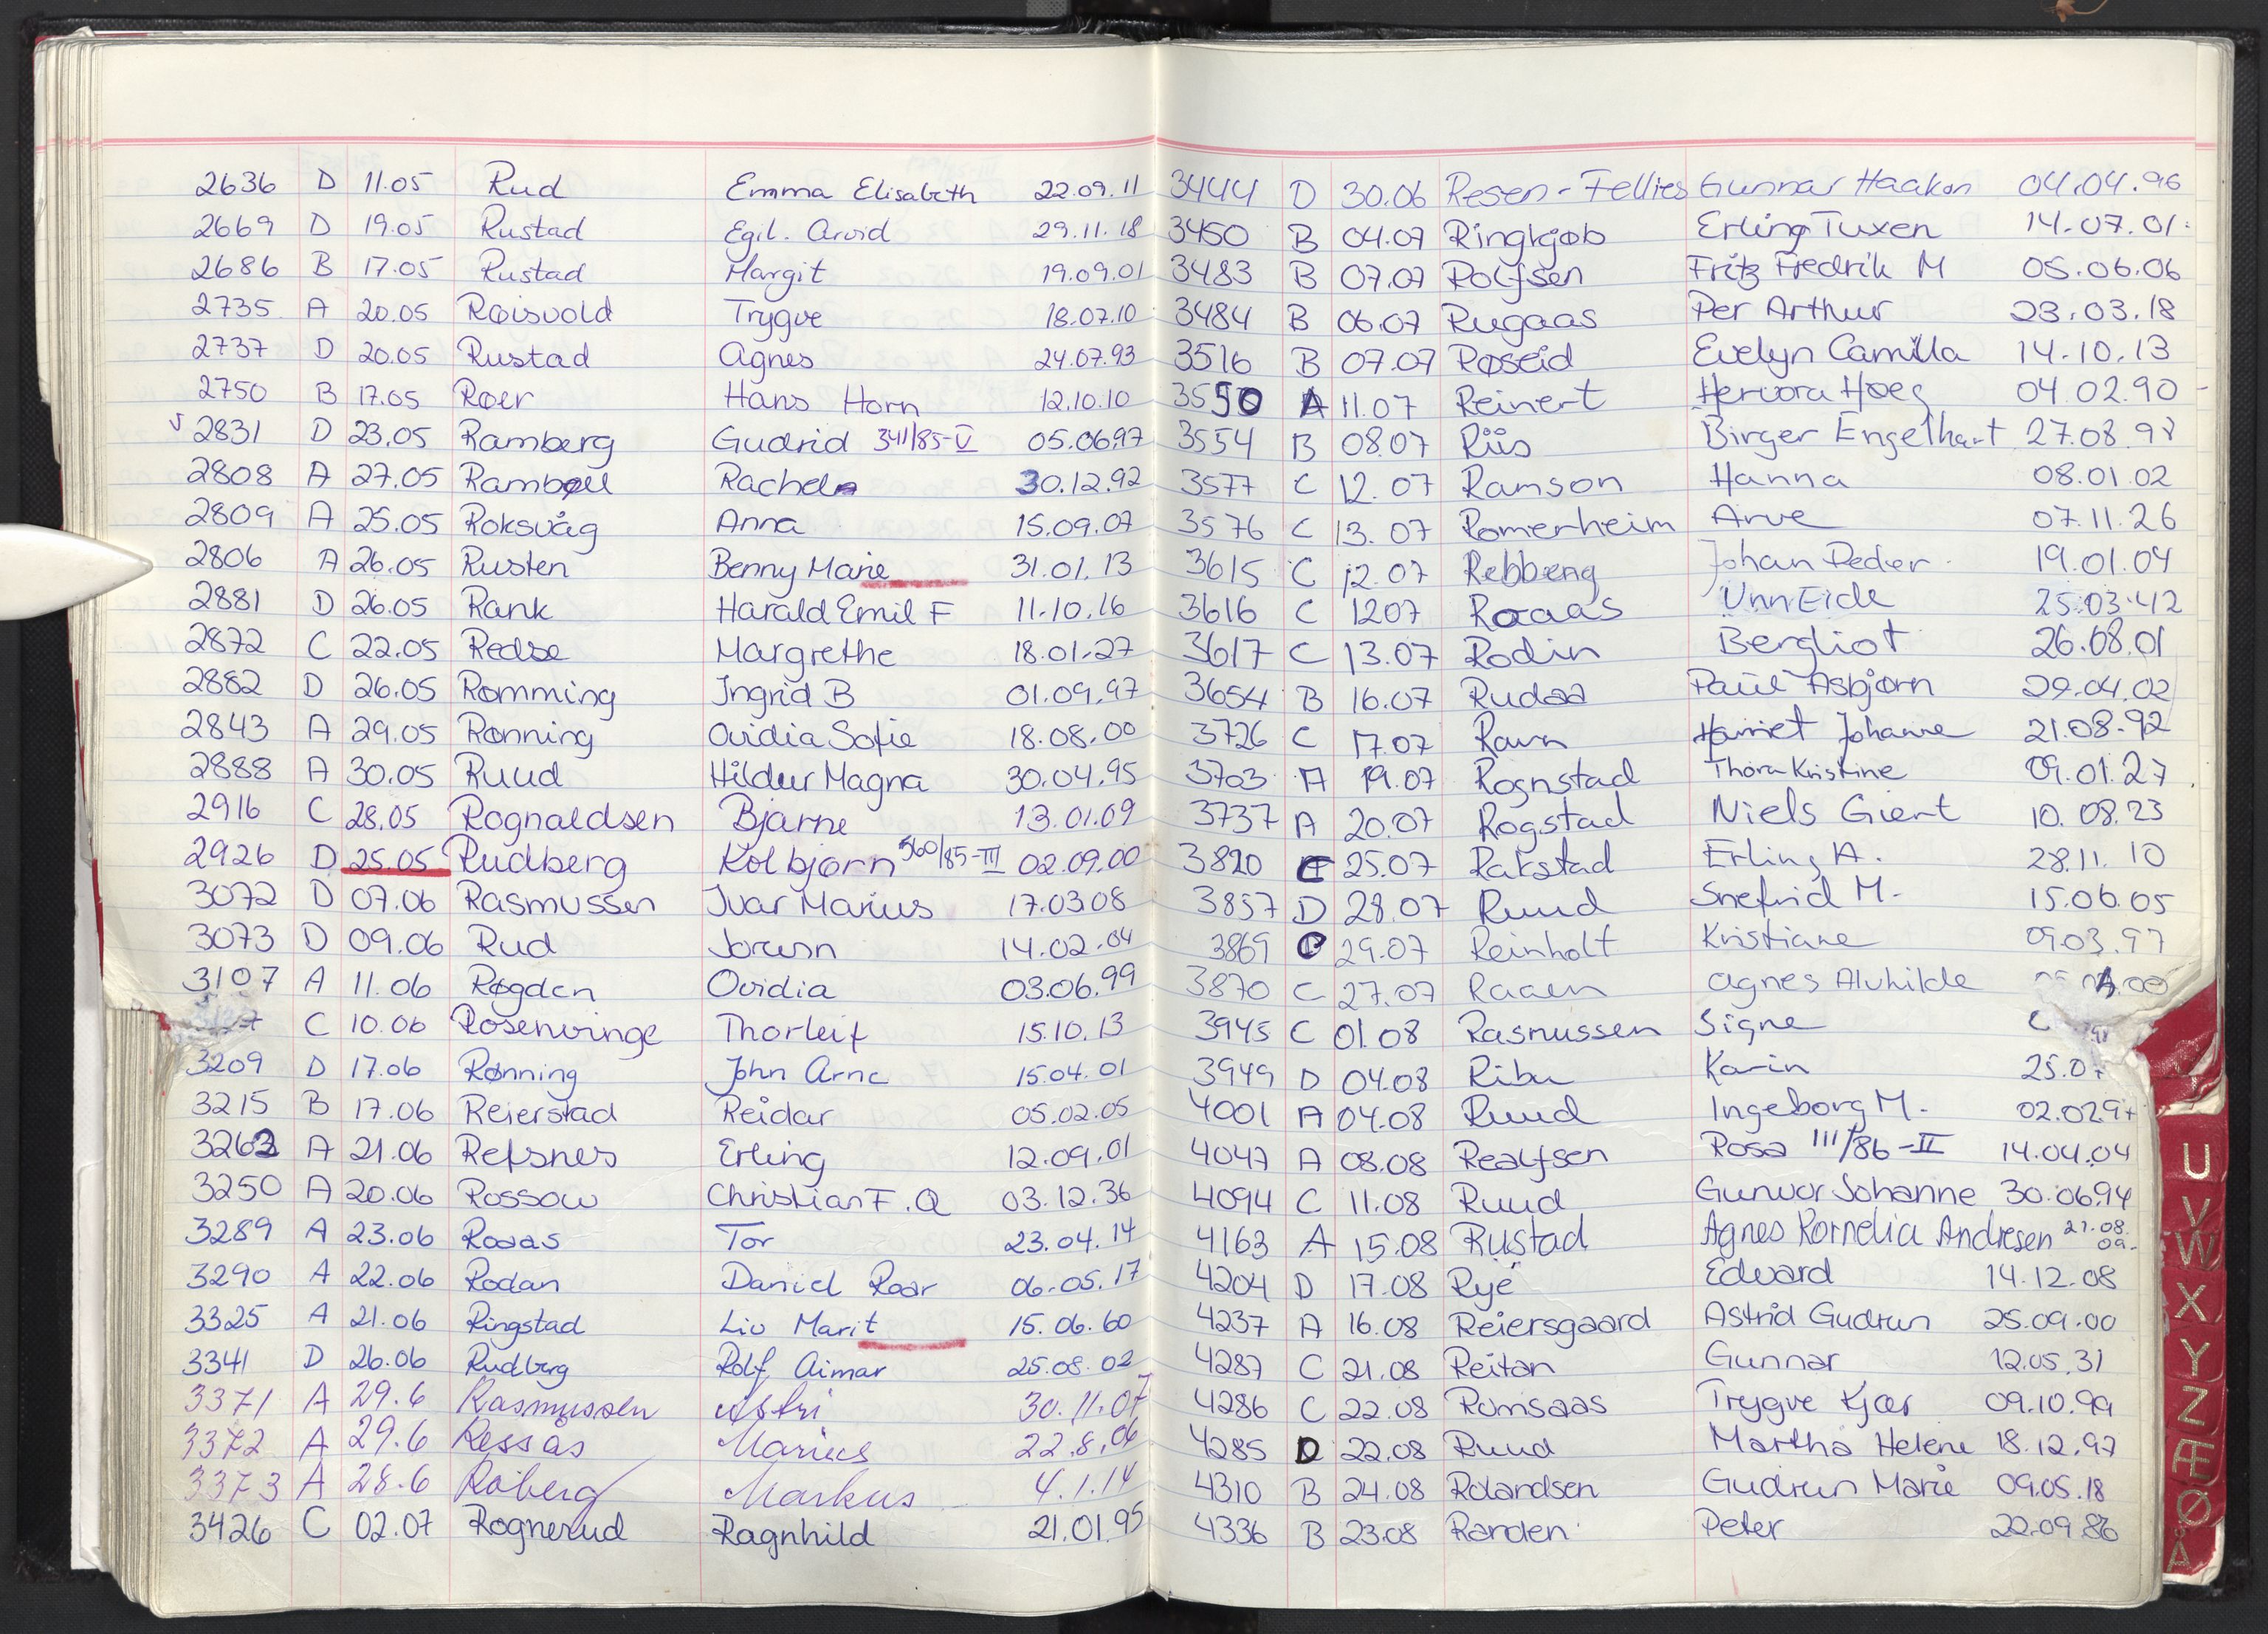 2636 D 11.05 Rud Emma Elisabeth 22.09.11
2669 D 19.05 Rustad Egil. Arvid 29.11.18
2686 B 17.05 Rustad Margit 19.09.01
2735 A 20.05 Røisvold Trygve 18.07.10
2737 D 20.05 Rustad Agnes 24.07.93
2750 B 17.05 Roer Hans Horn 12.10.10
2831 D 23.05 Ramberg Gudrid 341/85-V 05.06.97
2808 A 27.05 Rambøll Rachel 30.12.92
2809 A 25.05 Roksvåg Anna 15.09.07
2806 A 26.05 Rusten Benny Marie 31.01.13
2881 D 26.05 Rank Harald Emil F 11.10.16
2872 C 22.05 Redse Margrethe 18.01.27
2882 D 26.05 Rømming Ingrid B 01.09.97
2843 A 29.05 Rønning Ovidia Sofie 18.08.00
2888 A 30.05 Ruud Hildur Magna 30.04.95
2916 C 28.05 Rognaldsen Bjarne 13.01.09
2926 D 25.05 Rudberg Kolbjørn 560/85-III 02.09.00
3072 D 07.06 Rasmussen Ivar Marius 17.03.08
3073 D 09.06 Rud Jorunn 14.02.04
3107 A 11.06 Røgden Ovidia 03.06.99
C 10.06 Rosenvinge Thorleif 15.10.13
3209 D 17.06 Rønning John Arne 15.04.01
3215 B 17.06 Reierstad Reidar 05.02.05
3262 A 21.06 Refsnes Erling 12.09.01
3250 A 20.06 Rossow Christian F. Q 03.12.36
3289 A 23.06 Roaas Tor 23.04.14
3290 A 22.06 Rodan Daniel Roar 06.05.17
3325 A 21.06 Ringstad Liv Marit 15.06.60
3341 D 26.06 Rudberg Rolf Aimar 25.08.02
3371 A 29.6 Rasmussen Astri 30.11.07
3372 A 29.6 Ressås Marius 22.8.06
3373 A 28.6 Råberg Markus 4.1.14
3426 C 02.07 Rognerud Ragnhild 21.01.95
3444 D 30.06 Resen-Fellies Gunnar Haakon 04.04.96
3450 B 04.07 Ringkjøb Erling Tuxen 14.07.01
3483 B 07.07 Rolfsen Fritz Fredrik M 05.06.06
3484 B 06.07 Rugaas Per Arthur 23.03.18
3516 B 07.07 Røseid Evelyn Camilla 14.10.13
3550 A 11.07 Reinert Hervora Hoeg 04.02.90
3554 B 08.07 Riis Birger Engelhart 27.08.98
3577 C 12.07 Ramson Hanna 08.01.02
3576 C 13.07 Romerheim Arve 07.11.26
3615 C 12.07 Rebbeng Johan Peder 19.01.04
3616 C 12.07 Roaas Unn Eide 25.03.42
3617 C 13.07 Rodin Bergliot 26.08.01
3654 B 16.07 Rudaa Paul Asbjørn 29.04.02
3726 C 17.07 Ravn Harriet Johanne 21.08.92
3703 A 19.07 Rognstad Thora Kristine 09.01.27
3737 A 20.07 Rogstad Niels Giert 10.08.23
3820 25.07 Rakstad Erling A. 28.11.10
3857 D 28.07 Ruud Snefrid M. 15.06.05
3869 C 29.07 Reinholt Kristiane 09.03.97
3870 C 27.07 Raaen Agnes Alvhilde
3945 C 01.08 Rasmussen Signe
3949 D 04.08 Ribu Karin 25.0
4001 A 04.08 Ruud Ingeborg M. 02.02.97
4047 A 08.08 Realfsen Rosa 111/86-II 14.04.04
4094 C 11.08 Ruud Gunvor Johanne 30.06.94
4163 A 15.08 Rustad Agnes Kornelia Andresen 27.08.09.
4204 D 17.08 Rye Edvard 14.12.08
4237 A 16.08 Reiersgaard Astrid Gudrun 25.09.00
4287 C 21.08 Reitan Gunnar 12.05.31
4286 C 22.08 Romsaas Trygve Kjær 09.10.99
4285 D 22.08 Ruud Martha Helene 18.12.97
4310 B 24.08 Rolandsen Gudrun Marie 09.05.18
4336 B 23.08 Randen Peter 22.09.86
U
V
W
X
Y
Z
Æ
Ø
Å